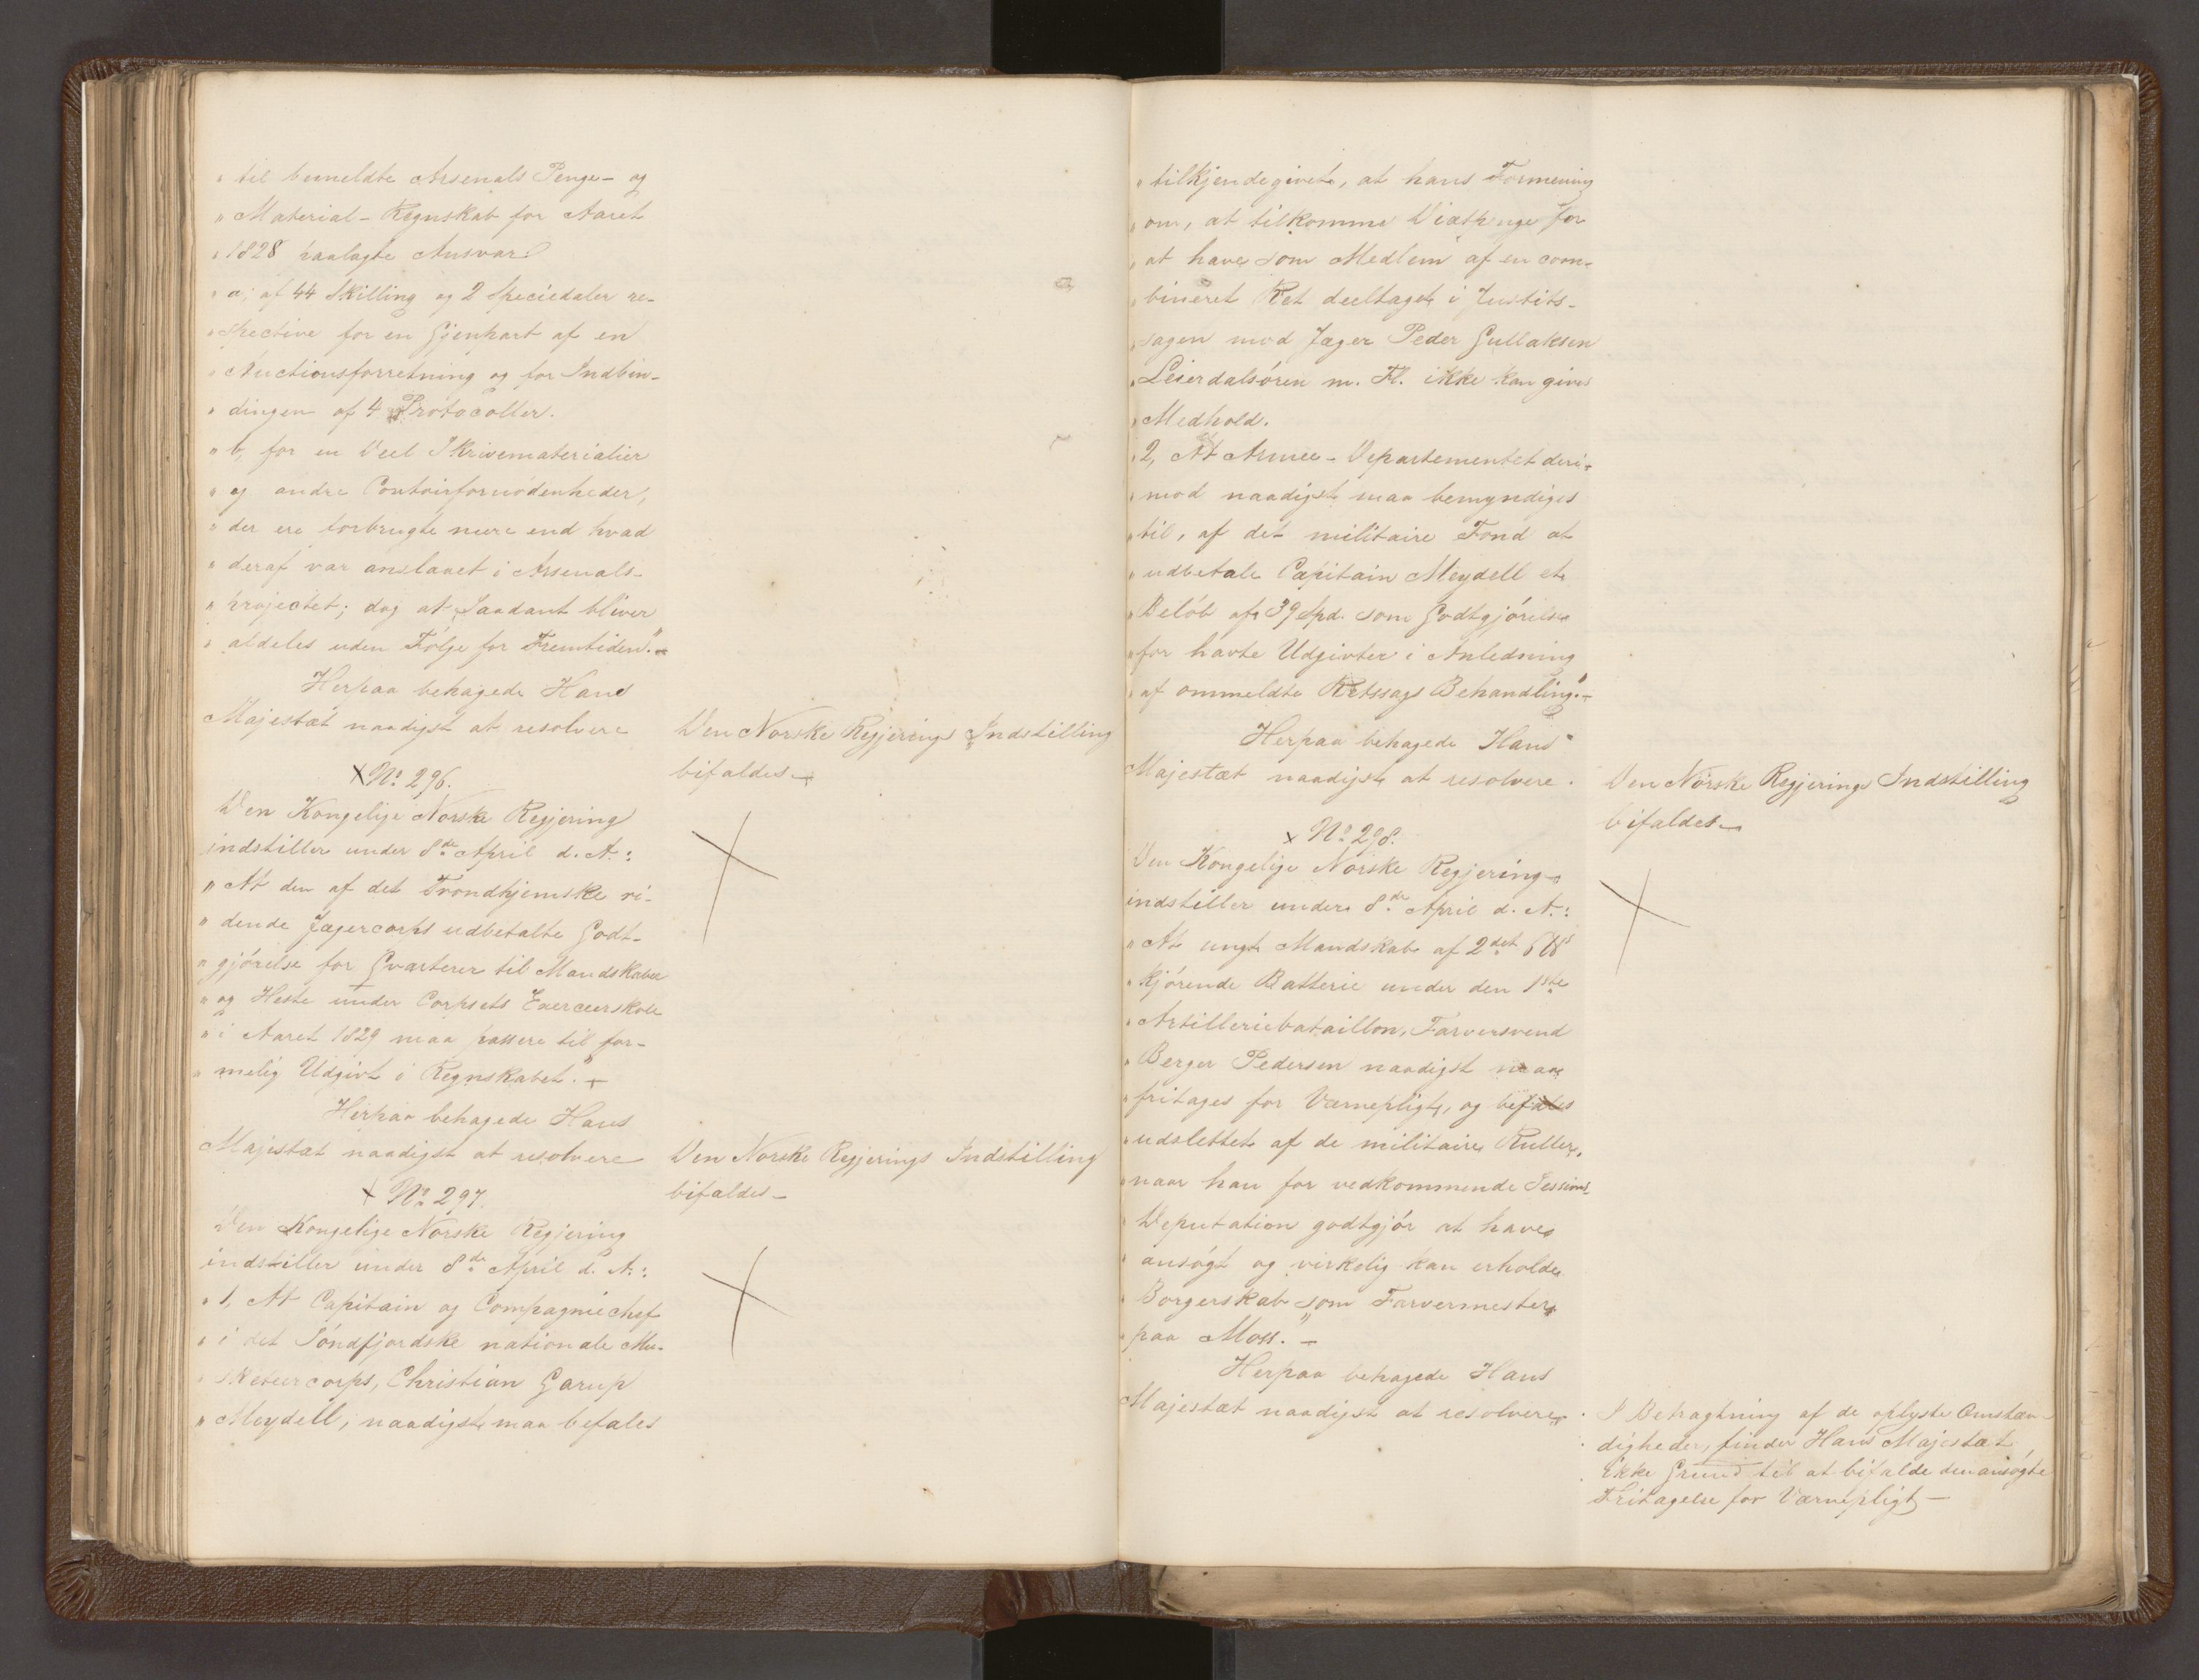 " til bemeldte Arsenals Penge- og
" Material-Regnskab for Aaret
" 1828 paalagte Ansvar:
" a, af 44 Skilling og 2 Speciedaler re-
" spective for en Gjenpart af en
" Auctionsforretning og for Indbin-
" dingen af 4 Protocoller.
" b, for en Deel Skrivematerialier
" og andre Contoirfornødenheder,
" der ere forbrugte mere end hvad
" deraf var anslaaet i Arsenals-
" projectet; dog at Saadant bliver
" aldeles uden Følge for Fremtiden." -
Herpaa behagede Hans
Majestæt naadigst at resolvere
Den Norske Regjerings Indstilling
bifaldes -
x No. 296.
Den Kongelige Norske Regjering
indstiller under 8de April d. A.:
" At den af det Trondhjemske ri-
" dende Jægercorps udbetalte Godt-
" gjørelse for Qvarterer til Mandskaber
" og Heste under Corpsets Exerceerskole
" i Aaret 1829 maa passere til for-
" melig Udgivt i Regnskabet." -
Herpaa behagede Hans
Majestæt naadigst at resolvere
Den Norske Regjerings Indstilling
bifaldes -
x No. 297.
Den Kongelige Norske Regjering
indstiller under 8de April d. A.:
" 1, At Capitain og Compagniechef
" i det Søndfjordske nationale Mu-
" sketeercorps, Christian Garup
" Meydell, naadigst maa befales
" tilkjendegivet, at hans Formening
" om, at tilkomme Diætpenge for
" at have som Medlem af en com-
" bineret Ret deeltaget i Justits-
" sagen mod Jæger Peder Gullaksen
" Leierdalsøren m. Fl. ikke kan gives
" Medhold.
" 2, At Armee-Departementet deri-
" mod naadigst maa bemyndiges
" til, af det militaire Fond at
" udbetale Capitain Meydell et
" Beløb af 39 Spd. som Godtgjørelse
" for havte Udgivter i Anledning
" af ommeldte Retssags Behandling." -
Herpaa behagede Hans
Majestæt naadigst at resolvere.
Den Norske Regjerings Indstilling
bifaldes -
x No. 298.
Den Kongelige Norske Regjering
indstiller under 8de April d. A.:
" At ungt Mandskab af 2det 6 ℔s
" kjørende Batterie under den 1ste
" Artilleriebataillon, Farversvend
" Berger Pedersen naadigst maa
" fritages for Værnepligt, og befales
" udslettet af de militaire Ruller,
" naar han for vedkommende Sessions-
" Deputation godtgjør at have
" ansøgt og virkelig kan erholde
" Borgerskab som Farvermester
" paa Moss." -
Herpaa behagede Hans
Majestæt naadigst at resolvere
I Betragtning af de oplyste Omstæn-
digheder, finder Hans Majestæt
ikke Grund til at bifalde den ansøgte
Fritagelse for Værnepligt -